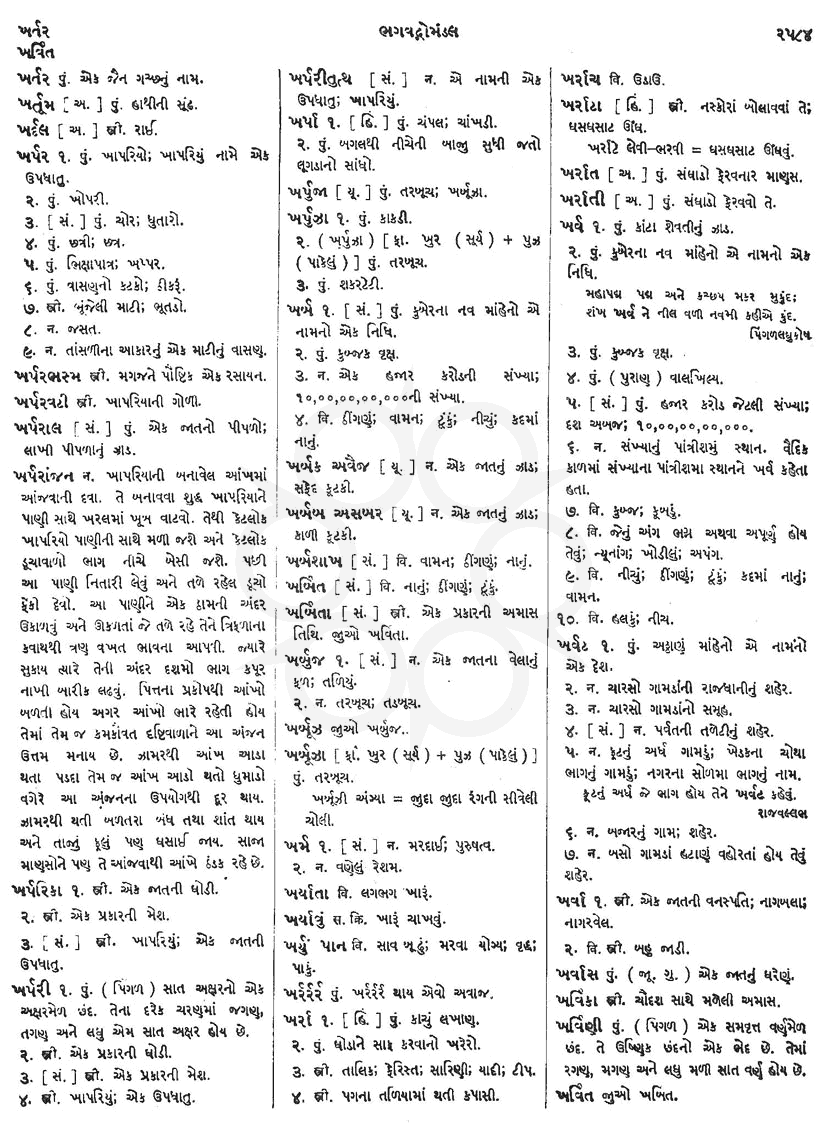 ખર્તર
ખર્વિત
ભગવદ્ગોમંડલ
૨૫૮૪
ખર્તર પું. એક જૈન ગચ્છનું નામ.
ખર્તૂમ [ અ. ] પું. હાથીની સૂંઢ.
ખર્દલ [ અ. ] સ્ત્રી. રાઈ.
ખર્પર ૧. પું. ખાપરિયો; ખાપરિયું નામે એક
ઉપધાતુ.
૨. પું. ખોપરી.
૩. [ સં. ] પું. ચોર; ધુતારો.
૪. પું. છત્રી; છત્ર.
૫. પું. ભિક્ષાપાત્ર; ખપ્પર.
૬. પું. વાસણનો કટકો; ઠીકરૂં.
૭. સ્ત્રી. ભૂંજેલી માટી; ભૂતડો.
૮. ન. જસત.
૯. ન. તાંસળીના આકારનું એક માટીનું વાસણ.
ખર્પરભસ્મ સ્ત્રી. મગજને પૌષ્ટિક એક રસાયન.
ખર્પરવટી સ્ત્રી. ખાપરિયાની ગોળી.
ખર્પરાલ [ સં. ] પું. એક જાતનો પીપળો;
લાખી પીપળાનું ઝાડ.
ખર્પરાંજન ન. ખાપરિયાની બનાવેલ આંખમાં
આંજવાની દવા. તે બનાવવા શુદ્ધ ખાપરિયાને
પાણી સાથે ખરલમાં ખૂબ વાટવો. તેથી કેટલોક
ખાપરિયો પાણીની સાથે મળી જશે અને કેટલોક
ડૂચાવાળો ભાગ નીચે બેસી જશે. પછી
આ પાણી નિતારી લેવું અને તળે રહેલ ડૂચો
ફેંકી દેવો. આ પાણીને એક ઠામની અંદર
ઉકાળવું અને ઊકળતાં જે તળે રહે તેને ત્રિફળાના
ક્વાથથી ત્રણ વખત ભાવના આપવી. જ્યારે
સુકાય ત્યારે તેની અંદર દશમો ભાગ કપૂર
નાખી બારીક લઢવું. પિત્તના પ્રકોપથી આંખો
બળતી હોય અગર આંખો ભારે રહેતી હોય
તેમાં તેમ જ કમકૌવત દૃષ્ટિવાળાને આ અંજન
ઉત્તમ મનાય છે. ઝામરથી આંખ આડા
થતા પડદા તેમ જ આંખ આડો થતો ધુમાડો
વગેરે આ અંજનના ઉપયોગથી દૂર થાય.
ઝામરથી થતી બળતરા બંધ તથા શાંત થાય
અને તાજું ફૂલું પણ ઘસાઈ જાય. સાજા
માણસોને પણ તે આંજવાથી આંખે ઠંડક રહે છે.
ખર્પરિકા ૧. સ્ત્રી. એક જાતની ઘોડી.
૨. સ્ત્રી. એક પ્રકારની મેશ.
૩. [ સં. ] સ્ત્રી. ખાપરિયું; એક જાતની
ઉપધાતુ.
ખર્પરી ૧. પું. ( પિંગળ ) સાત અક્ષરનો એક
અક્ષરમેળ છંદ. તેના દરેક ચરણમાં જગણ,
તગણ અને લઘુ એમ સાત અક્ષર હોય છે.
૨. સ્ત્રી. એક પ્રકારની ઘોડી.
૩. [ સં. ] સ્ત્રી. એક પ્રકારની મેશ.
૪. સ્ત્રી. ખાપરિયું; એક ઉપધાતુ.
ખર્પરીતુત્થ [ સં. ] ન. એ નામની એક
ઉપધાતુ; ખાપરિયું.
ખર્પા ૧. [ હિં. ] પું. ચંપલ; ચાંખડી.
૨. પું. બગલથી નીચેની બાજુ સુધી જતો
લૂગડાનો સાંધો.
ખર્પુજા [ યૂ. ] પું. તરબૂચ; ખર્બૂઝા.
ખર્પુઝા ૧. પું. કાકડી.
૨. ( ખર્પુઝા ) [ ફ્રા. ખુર ( સૂર્ય ) + પુઝ
( પાકેલું ) ] પું. તરબૂચ.
૩. પું. શકરટેટી.
ખર્બ ૧. [ સં. ] પું. કુબેરના નવ માંહેનો એ
નામનો એક નિધિ.
૨. પું. કુબ્જક વૃક્ષ.
૩. ન. એક હજાર કરોડની સંખ્યા;
૧૦,૦૦,૦૦,૦૦,૦૦૦ની સંખ્યા.
૪. વિ. ઠીંગણું; વામન; ટૂંકું; નીચું; કદમાં
નાનું.
ખર્બક અવૈજ [ યૂ. ] ન. એક જાતનું ઝાડ;
સફેદ કૂટકી.
ખર્બખ અસબર [ યૂ. ] ન. એક જાતનું ઝાડ;
કાળી કૂટકી.
ખર્બશાખ [ સં. ] વિ. વામન; ઠીંગણું; નાનું.
ખર્બિત [ સં. ] વિ. નાનું; ઠીંગણું; ટૂંકું.
ખર્બિતા [ સં. ] સ્ત્રી. એક પ્રકારની અમાસ
તિથિ. જુઓ ખર્વિતા.
ખર્બુજ ૧. [ સં. ] ન. એક જાતના વેલાનું
ફળ; તળિયું.
૨. ન. તરબૂચ; તડબૂચ.
ખર્બૂઝ જુઓ ખર્બુજ..
ખર્બૂઝા [ ફ્રા. ખુર ( સૂર્ય ) + પુઝ ( પાકેલું ) ]
પું. તરબૂચ.
ખર્બૂઝી અંગ્યા = જુદા જુદા રંગની સીવેલી
ચોલી.
ખર્મ ૧. [ સં. ] ન. મરદાઈ; પુરુષત્વ.
૨. ન. વણેલું રેશમ.
ખર્યાતા વિ. લગભગ ખારૂં.
ખર્યાત્રું સ. ક્રિ. ખારૂં ચાખવું.
ખર્યું પાન વિ. સાવ બૂઢું; મરવા યોગ્ય; વૃદ્ધ;
પાકું.
ખર્રર્રર્ર પું. ખર્રર્રર્ર થાય એવો અવાજ.
ખર્રા ૧. [ હિં. ] પું. કાચું લખાણ.
૨. પું. ઘોડાને સાફ કરવાનો ખરેરો.
૩. સ્ત્રી. તાલિક; ફેરિસ્ત; સારિણી; યાદી; ટીપ.
૪. સ્ત્રી. પગના તળિયામાં થતી કપાસી.
ખર્રાચ વિ. ઉડાઉ.
ખર્રાટા [ હિં. ] સ્ત્રી. નસ્કોરાં બોલાવવાં તે;
ઘસઘસાટ ઊંઘ.
ખર્રાટે લેવી-ભરવી = ઘસઘસાટ ઊંઘવું.
ખર્રાત [ અ. ] પું. સંઘાડો ફેરવનાર માણસ.
ખર્રાતી [ અ. ] પું. સંઘાડો ફેરવવો તે.
ખર્વ ૧. પું. કાંટા શેવતીનું ઝાડ.
૨. પું. કુબેરના નવ માંહેનો એ નામનો એક
નિધિ.
મહાપદ્મ પદ્મ અને કચ્છપ મકર મુકુંદ;
શંખ ખર્વ ને નીલ વળી નવમી કહીએ કુંદ.
પિંગળલઘુકોષ
૩. પું. કુબ્જક વૃક્ષ.
૪. પું. ( પુરાણ ) વાલખિલ્ય.
૫. [ સં. ] પું. હજાર કરોડ જેટલી સંખ્યા;
દશ અબજ; ૧૦,૦૦,૦૦,૦૦,૦૦૦.
૬. ન. સંખ્યાનું પાંત્રીશમું સ્થાન. વૈદિક
કાળમાં સંખ્યાના પાંત્રીશમા સ્થાનને ખર્વ કહેતા
હતા.
૭. વિ. કુબ્જ; કૂબડું.
૮. વિ. જેનું અંગ ભગ્ન અથવા અપૂર્ણ હોય
તેવું; ન્યૂનાંગ; ખોડીલું; અપંગ.
૯. વિ. નીચું; ઠીંગણું; ટૂંકું; કદમાં નાનું;
વામન.
૧૦. વિ. હલકું; નીચ.
ખર્વટ ૧. પું. અઠ્ઠાણું માંહેનો એ નામનો
એક દેશ.
૨. ન. ચારસો ગામડાંની રાજધાનીનું શહેર.
૩. ન. ચારસો ગામડાંનો સમૂહ.
૪. [ સં. ] ન. પર્વતની તળેટીનું શહેર.
૫. ન. કૂટનું અર્ધ ગામડું; ખેડકના ચોથા
ભાગનું ગામડું; નગરના સોળમા ભાગનું નામ.
કૂટનું અર્ધ જે ભાગ હોય તેને ખર્વટ કહેવું.
રાજવલ્લભ
૬. ન. બજારનું ગામ; શહેર.
૭. ન. બસો ગામડાં હટાણું વહોરતાં હોય તેવું
શહેર.
ખર્વા ૧. સ્ત્રી. એક જાતની વનસ્પતિ; નાગબલા;
નાગરવેલ.
૨. વિ. સ્ત્રી. બહુ જાડી.
ખર્વાસ પું. ( જૂ. ગુ. ) એક જાતનું ઘરેણું.
ખર્વિકા સ્ત્રી. ચૌદશ સાથે મળેલી અમાસ.
ખર્વિણી પું. ( પિંગળ ) એક સમવૃત્ત વર્ણમેળ
છંદ. તે ઉષ્ણિક છંદનો એક ભેદ છે. તેમાં
રગણ, મગણ અને લઘુ મળી સાત વર્ણ હોય છે.
ખર્વિત જુઓ ખર્બિત.